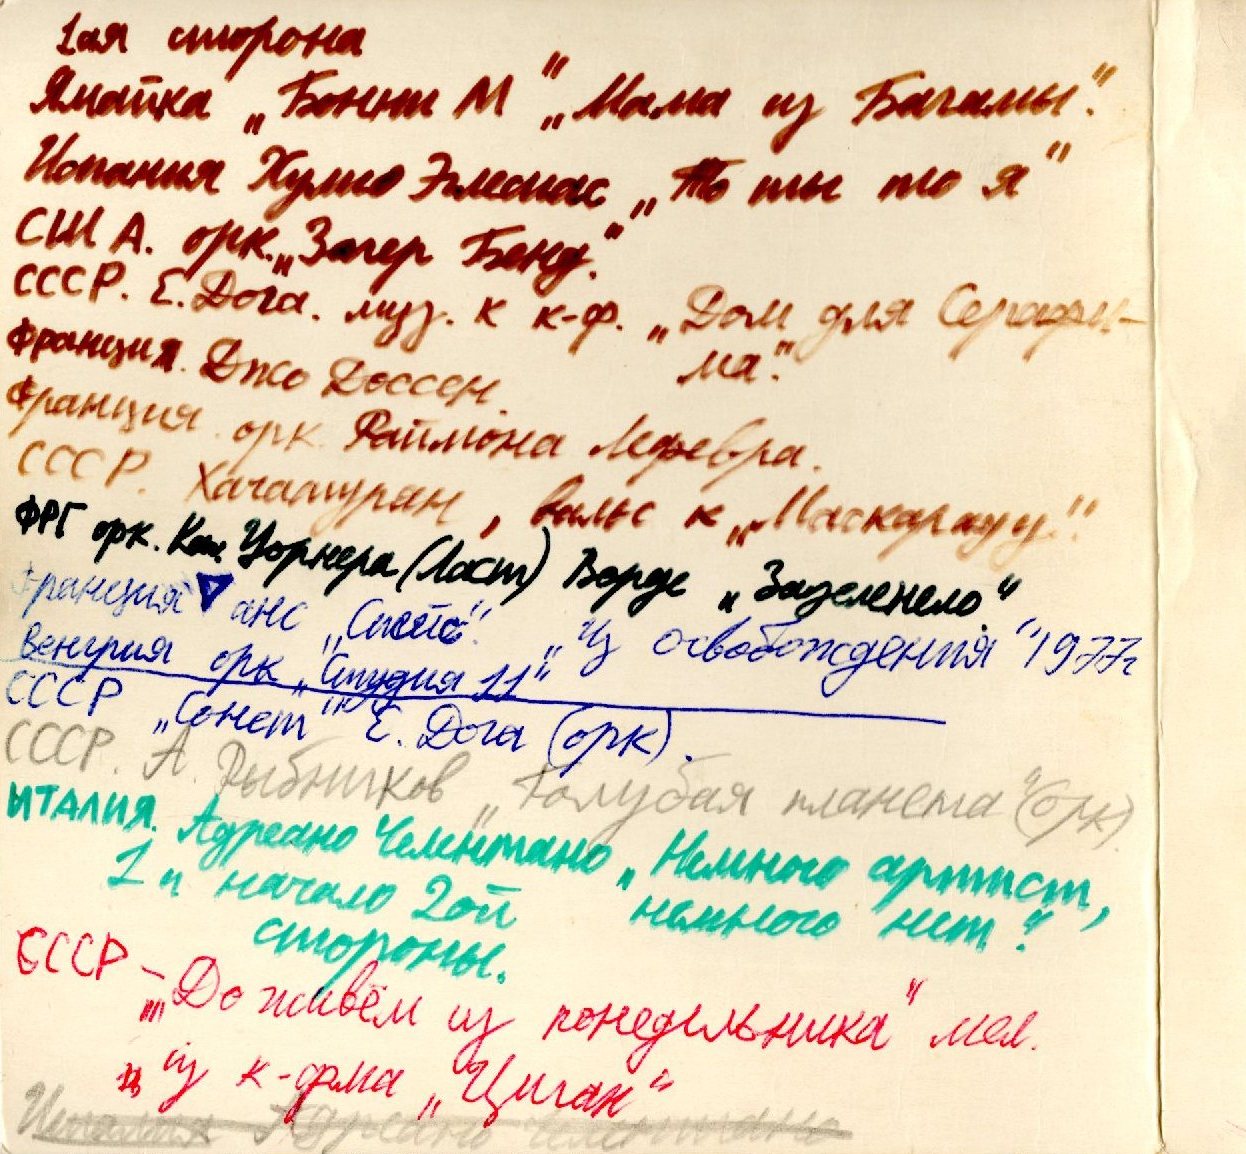 1ая сторона
Ямайка „Бонни М" „Мама из Багамы".
Испания Хулио Эглесиас „То ты то я"
США. орк. „Загер Бенд".
СССР. Е. Дога. муз. к к-ф. „Дом для Серафи-
ма".
Франция. Джо Доссен.
Франция. орк. Раймона Лефевра.
СССР. Хачатурян, вальс к „Маскараду".
ФРГ орк. Кая Уорнера (Ласт) Ворде „Зазеленело."
Франция анс „Спейс". „Из освобождения" 1977г
Венгрия орк „Студия 11"
СССР „Сонет" Е. Дога (орк).
СССР. А. Рыбников „Голубая планета" (орк).
ИТАЛИЯ. Адреано Челентано „Немного артист,
немного нет".
1 и начало 2ой
стороны.
СССР – „Доживём из понедельника" мел.
из к-фма „Цыган"
Италия Адреано Челентано